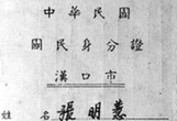 中華民國
國民身分證
漢口市
姓名 張明蕙